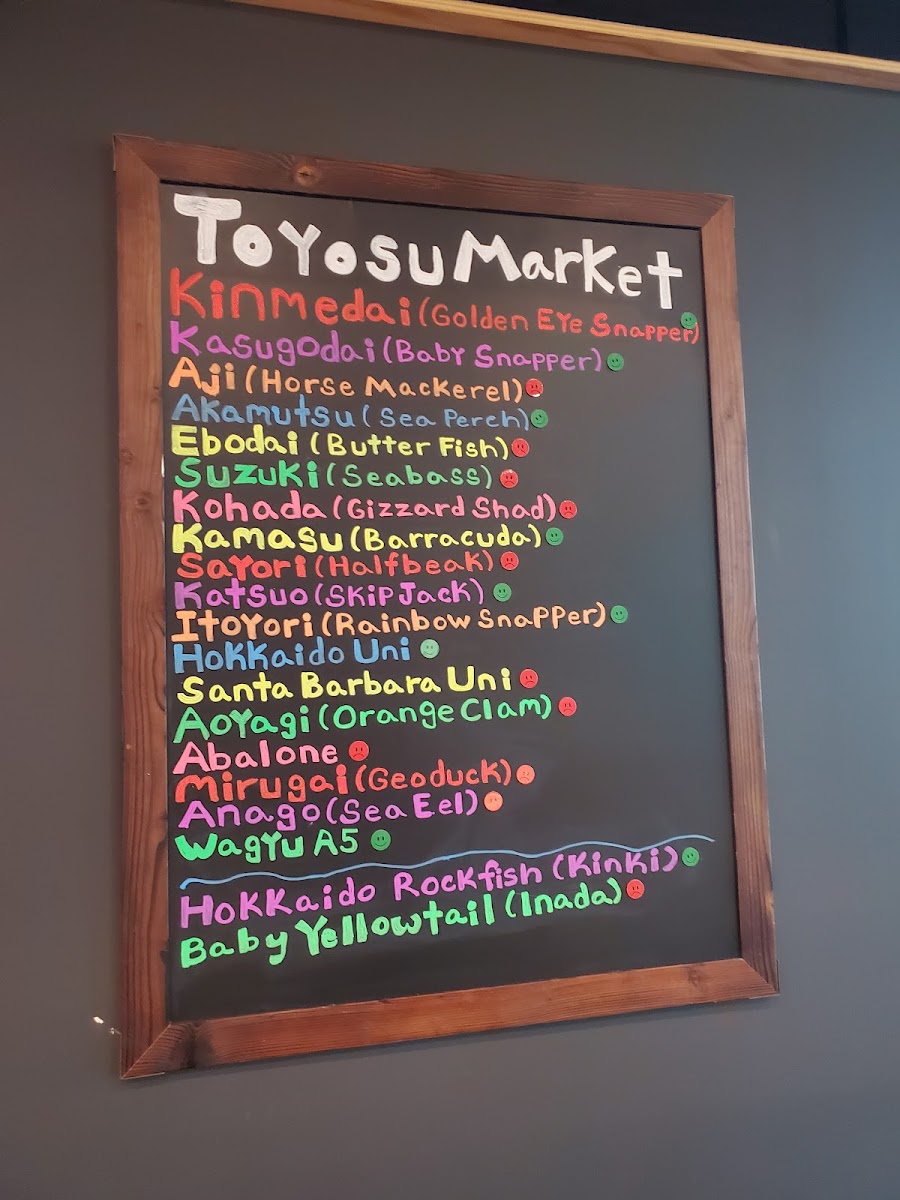 Toyosu Market
Kinmedai (Golden Eye Snapper)
Kasugodai (Baby Snapper)
Aji (Horse Mackerel)
Akamutsu (Sea Perch)
Ebodai (Butter Fish)
Suzuki (Seabass)
Kohada (Gizzard Shad)
Kamasu (Barracuda)
Sayori (Halfbeak)
Katsuo (Skip Jack)
Itoyori (Rainbow Snapper)
Hokkaido Uni
Santa Barbara Uni
Aoyagi (Orange Clam)
Abalone
Mirugai (Geoduck)
Anago (Sea Eel)
Wagyu A5
Hokkaido Rockfish (Kinki)
Baby Yellowtail (Inada)